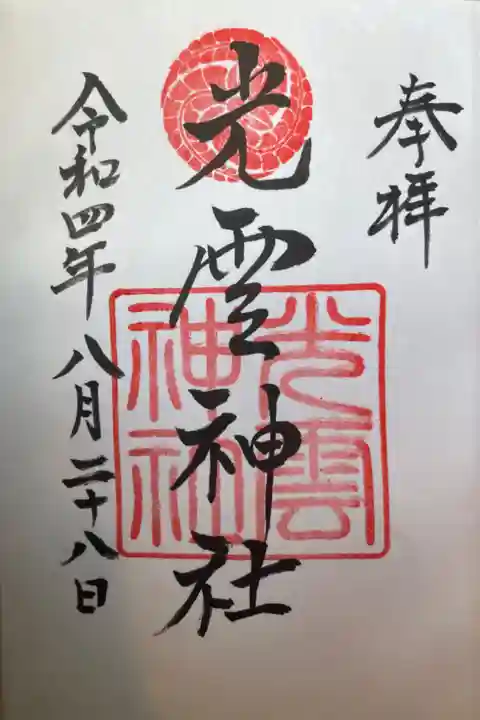 奉拝
光雲神社
光雲
神社
令和四年 八月二十八日